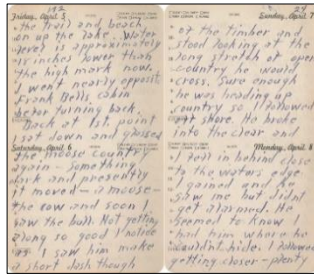 192
Friday, April 5
the trail and beach
on up the lake. Water
level is approximately
six inches lower than
the high mark now.
I went nearly opposite
Frank Bells cabin
before turning back.
Back at 1st. point
sat down and glassed
Saturday, April 6
the moose country
again - Something
dark and presently
it moved - a moose -
the cow and soon I
saw the bull. Not getting
along so good I notice
I saw him make
a short dash though
Sunday, April 7
of the timber and
stood looking at the
long stretch of open
country he would
cross. Sure enough
he was heading up
country so I followed
shore. He broke
into the clear and
Monday, April 8
I fell in behind close
to the waters edge
I gained and he
saw me but didnt
get alarmed. He
seemed to know I
had him where he
wouldnt hide. I followed
getting closer - plenty